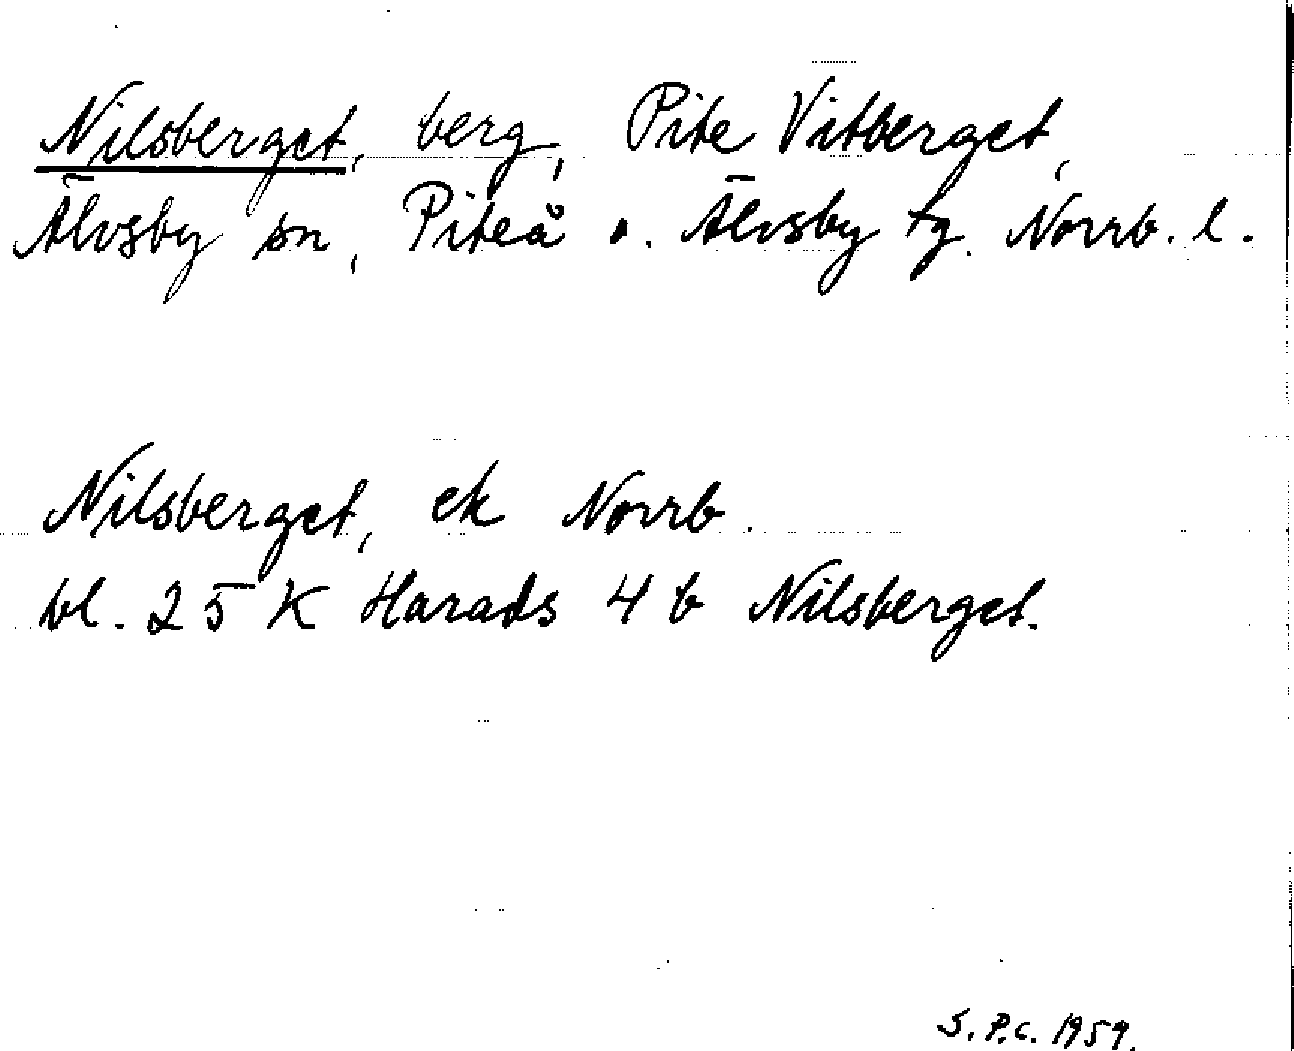 Nilsberget, berg, Pite Vitberget,
Älvsby sn, Piteå o. Älvsby tg. Norrb. l.
Nilsberget, ek Norrb.
bl. 25 K Harads 4 b Nilsberget.
S.P.C. 1959.